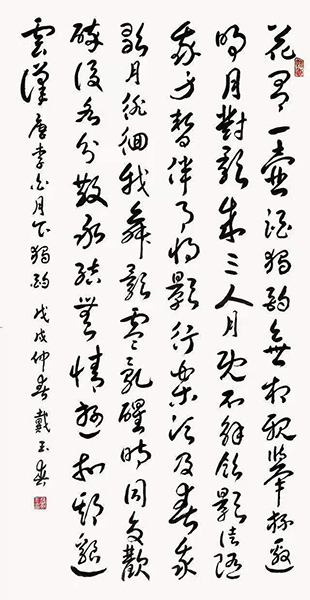 花間一壺酒獨酌無相親舉杯邀
明月對影成三人月既不解飲影徒隨
我身暫伴月將影行樂須及春我
歌月徘徊我舞影零亂醒時同交歡
醉後各分散永結無情遊相期邈
雲漢 唐李白月下獨酌 戊戌仲春戴玉